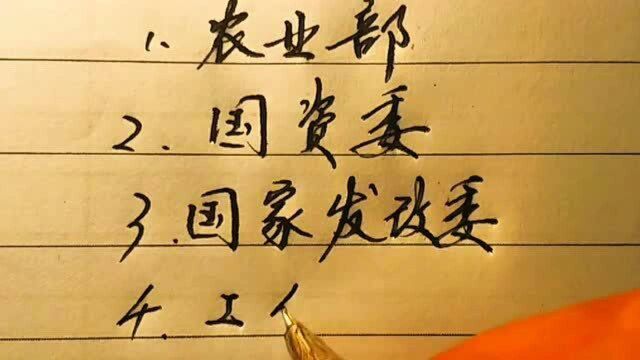 1. 农业部
2. 国资委
3. 国家发改委
4. 工